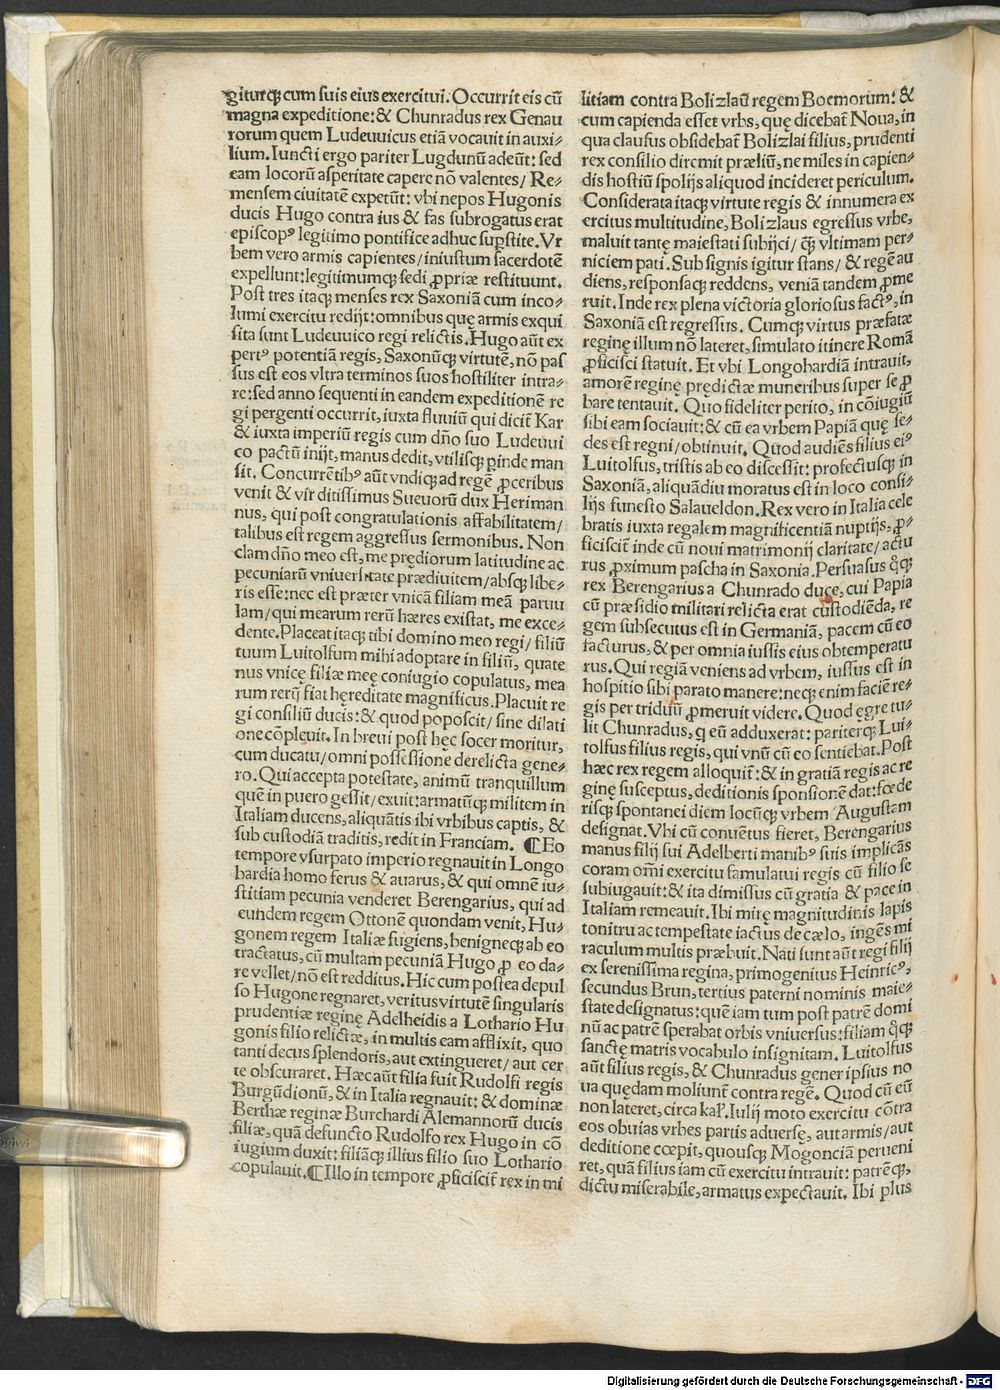 giturq̃ cum suis eius exercitui. Occurrit eis cũ
magna expeditione: & Chunradus rex Genau
rorum quem Ludeuuicus etiã vocauit in auxi⸗
lium. Iuncti ergo pariter Lugdunũ adeũt: sed
eam locorũ asperitate capere nõ valentes/ Re⸗
mensem ciuitatẽ expetũt: vbi nepos Hugonis
ducis Hugo contra ius & fas subrogatus erat
episcopꝰ legitimo pontifice adhuc suꝑstite. Vr
bem vero armis capientes/ iniustum sacerdotẽ
expellunt: legitimumqꝫ sedi ꝓpriæ restituunt.
Post tres itaqꝫ menses rex Saxoniã cum inco⸗
lumi exercitu redijt: omnibus quę armis exqui
sita sunt Ludeuuico regi relictis. Hugo aũt ex
pertꝰ potentiã regis, Saxonũqꝫ virtutẽ, nõ pas
sus est eos vltra terminos suos hostiliter intra⸗
re: sed anno sequenti in eandem expeditionẽ re
gi pergenti occurrit, iuxta fluuiũ qui dicit̃ Kar
& iuxta imperiũ regis cum dño suo Ludeuui
co pactũ inijt, manus dedit, vtilisqꝫ ꝑinde man
sit. Concurrẽtibꝰ aũt vndiqꝫ ad regẽ ꝓceribus
venit & vir ditissimus Sueuorũ dux Heriman
nus, qui post congratulationis affabilitatem/
talibus est regem aggressus sermonibus. Non
clam dño meo est, me prędiorum latitudine ac
pecuniarũ vniuersitate prædiuitem/ absqꝫ libe⸗
ris esse: nec est præter vnicã filiam meã paruu
lam/ qui mearum rerũ hæres existat, me exce⸗
dente. Placeat itaqꝫ tibi domino meo regi/ filiũ
tuum Luitolfum mihi adoptare in filiũ, quate
nus vnicę filiæ meę coniugio copulatus, mea
rum rerũ fiat hęreditate magnificus. Placuit re
gi consiliũ ducis: & quod poposcit/ sine dilati
one cõpleuit. In breui post hęc socer moritur,
cum ducatu/ omni possessione derelicta gene⸗
ro. Qui accepta potestate, animũ tranquillum
quẽ in puero gessit/ exuit: armatũqꝫ militem in
Italiam ducens, aliquãtis ibi vrbibus captis, &
sub custodiã traditis, redit in Franciam. ¶Eo
tempore vsurpato imperio regnauit in Longo
bardia homo ferus & auarus, & qui omnẽ iu⸗
stitiam pecunia venderet Berengarius, qui ad
eundem regem Ottonẽ quondam venit, Hu⸗
gonem regem Italiæ fugiens, benigneqꝫ ab eo
tractatus, cũ multam pecuniã Hugo ꝓ eo da⸗
re vellet/ nõ est redditus. Hic cum postea depul
so Hugone regnaret, veritus virtutẽ singularis
prudentiæ reginę Adelheidis a Lothario Hu
gonis filio relictæ, in multis eam afflixit, quo
tanti decus splendoris, aut extingueret/ aut cer
te obscuraret. Hæc aũt filia fuit Rudolfi regis
Burgũdionũ, & in Italia regnauit: & dominæ
Berthæ reginæ Burchardi Alemannorũ ducis
filiæ, quã defuncto Rudolfo rex Hugo in cõ
iugium duxit: filiãqꝫ illius filio suo Lothario
copulauit. ¶Illo in tempore ꝓficiscit̃ rex in mi
litiam contra Bolizlaũ regem Boemorum: &
cum capienda esset vrbs, quę dicebat̃ Noua, in
qua clausus obsidebat̃ Bolizlai filius, prudenti
rex consilio diremit præliũ, ne miles in capien⸗
dis hostiũ spolijs aliquod incideret periculum.
Considerata itaqꝫ virtute regis & innumera ex
ercitus multitudine, Bolizlaus egressus vrbe,
maluit tantę maiestati subijci/ q̃ꝫ vltimam per⸗
niciem pati. Sub signis igitur stans/ & regẽ au
diens, responsaqꝫ reddens, veniã tandem ꝓme
ruit. Inde rex plena victoria gloriosus factꝰ, in
Saxoniã est regressus. Cumqꝫ virtus præfatæ
reginę illum nõ lateret, simulato itinere Romã
ꝓficisci statuit. Et vbi Longobardiã intrauit,
amorẽ reginę prędictæ muneribus super se ꝓ
bare tentauit. Quo fideliter perito, in cõiugiũ
sibi eam sociauit: & cũ ea vrbem Papiã quę se⸗
des est regni/ obtinuit. Quod audiẽs filius eiꝰ
Luitolfus, tristis ab eo discessit: profectusqꝫ in
Saxoniã, aliquãdiu moratus est in loco consi⸗
lijs funesto Salaueldon. Rex vero in Italia cele
bratis iuxta regalem magnificentiã nuptijs, ꝓ⸗
ficiscit̃ inde cũ noui matrimonij claritate/ actu
rus ꝓximum pascha in Saxonia. Persuasus q̊qꝫ
rex Berengarius a Chunrado duce, cui Papia
cũ præsidio militari relicta erat custodiẽda, re
gem subsecutus est in Germaniã, pacem cũ eo
facturus, & per omnia iussis eius obtemperatu
rus. Qui regiã veniens ad vrbem, iussus est in
hospitio sibi parato manere: neqꝫ enim faciẽ re⸗
gis per triduũ ꝓmeruit videre. Quod ęgre tu⸗
lit Chunradus, q̃ eũ adduxerat: pariterqꝫ Lui⸗
tolfus filius regis, qui vnũ cũ eo sentiebat. Post
hæc rex regem alloquit̃: & in gratiã regis ac re
ginę susceptus, deditionis sponsionẽ dat: fœde
risqꝫ spontanei diem locũqꝫ vrbem Augustam
designat. Vbi cũ conuẽtus fieret, Berengarius
manus filij sui Adelberti manibꝰ suis implicãs
coram omni exercitu famulatui regis cũ filio se
subiugauit: & ita dimissus cũ gratia & pace in
Italiam remeauit. Ibi mirę magnitudinis lapis
tonitru ac tempestate iactus de cælo, ingẽs mi
raculum multis præbuit. Nati sunt aũt regi filij
ex serenissima regina, primogenitus Heinricꝰ,
secundus Brun, tertius paterni nominis maie⸗
state designatus: quẽ iam tum post patrẽ domi
nũ ac patrẽ sperabat orbis vniuersus: filiam q̊qꝫ
sanctę matris vocabulo insignitam. Luitolfus
aũt filius regis, & Chunradus gener ipsius no
ua quędam moliunt̃ contra regẽ. Quod cũ eũ
non lateret, circa kal̃. Iulij moto exercitu cõtra
eos obuias vrbes partis aduersę, aut armis/ aut
deditione cœpit, quousqꝫ Mogonciã perueni
ret, quã filius iam cũ exercitu intrauit: patrẽqꝫ,
dictu miserabile, armatus expectauit. Ibi plus
Digitalisierung gefördert durch die Deutsche Forschungsgemeinschaft - DFG